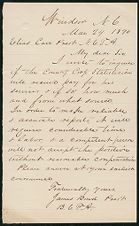 Windsor N.C
Mar 29 1890
Elias Carr Prest. N.C.F.A.
My dear Sir
I write to inquire
if the County Crop Statistician
will receive pay for his
services & if so how much
and from what source.
In order to make reliable
& accurate reports it will
require considerable time
& labor & a competent man
will not accept the position
without reasonable compensation
Please answer at your earliest
convenience.
Fraternally yours
James Bond Prest.
B.C.F.A.